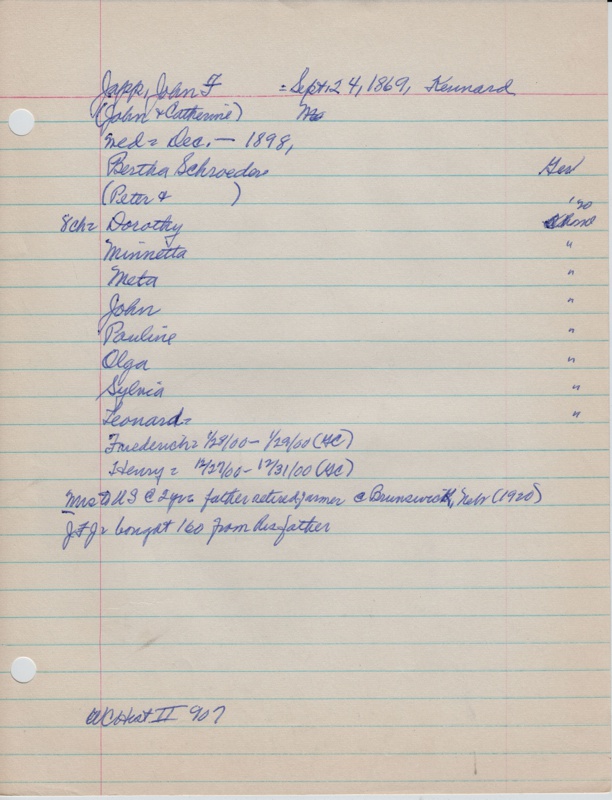 Japp, John F = Sept. 24, 1869, Kennard
(John & Catherine)
med = Dec. — 1898,
Bertha Schroeder Ger
(Peter & )
'20
8ch = Dorothy
Minnetta "
Meta "
John "
Pauline "
Olga "
Sylvia "
Leonard = "
Friederich = 1/29/00 - 1/29/00 (GC)
Henry = 12/27/00 - 12/31/00 (GC)
Mrs to US @ 2 yrs father retired farmer @ Brunswick, Nebr (1920)
JFJ = bought 160 from his father
WCHist II 907